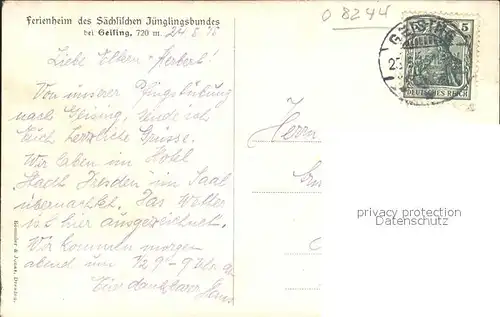 Ferienheim des Sächsischen Jünglingsbundes
bei Geising. 720 m.
24/5 15
O 8244
GEISING
5
DEUTSCHES REICH
Liebe Eltern, Herbert!
Von unserer Pfingstübung
nach Geising, sende ich
Euch herzliche Grüsse.
Wir haben im Hotel
„Stadt Dresden" im Saal
übernachtet. Das Wetter
ist hier ausgezeichnet.
Wir kommen morgen
abend um ½ 9 - 9 Uhr
Euer dankbarer Hans
Herrn
privacy protection
Datenschutz
Dresden.